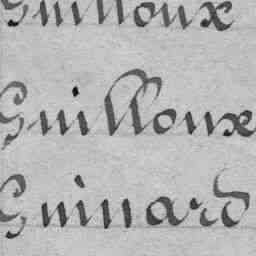 Guilloux
Guilloux
Guinard